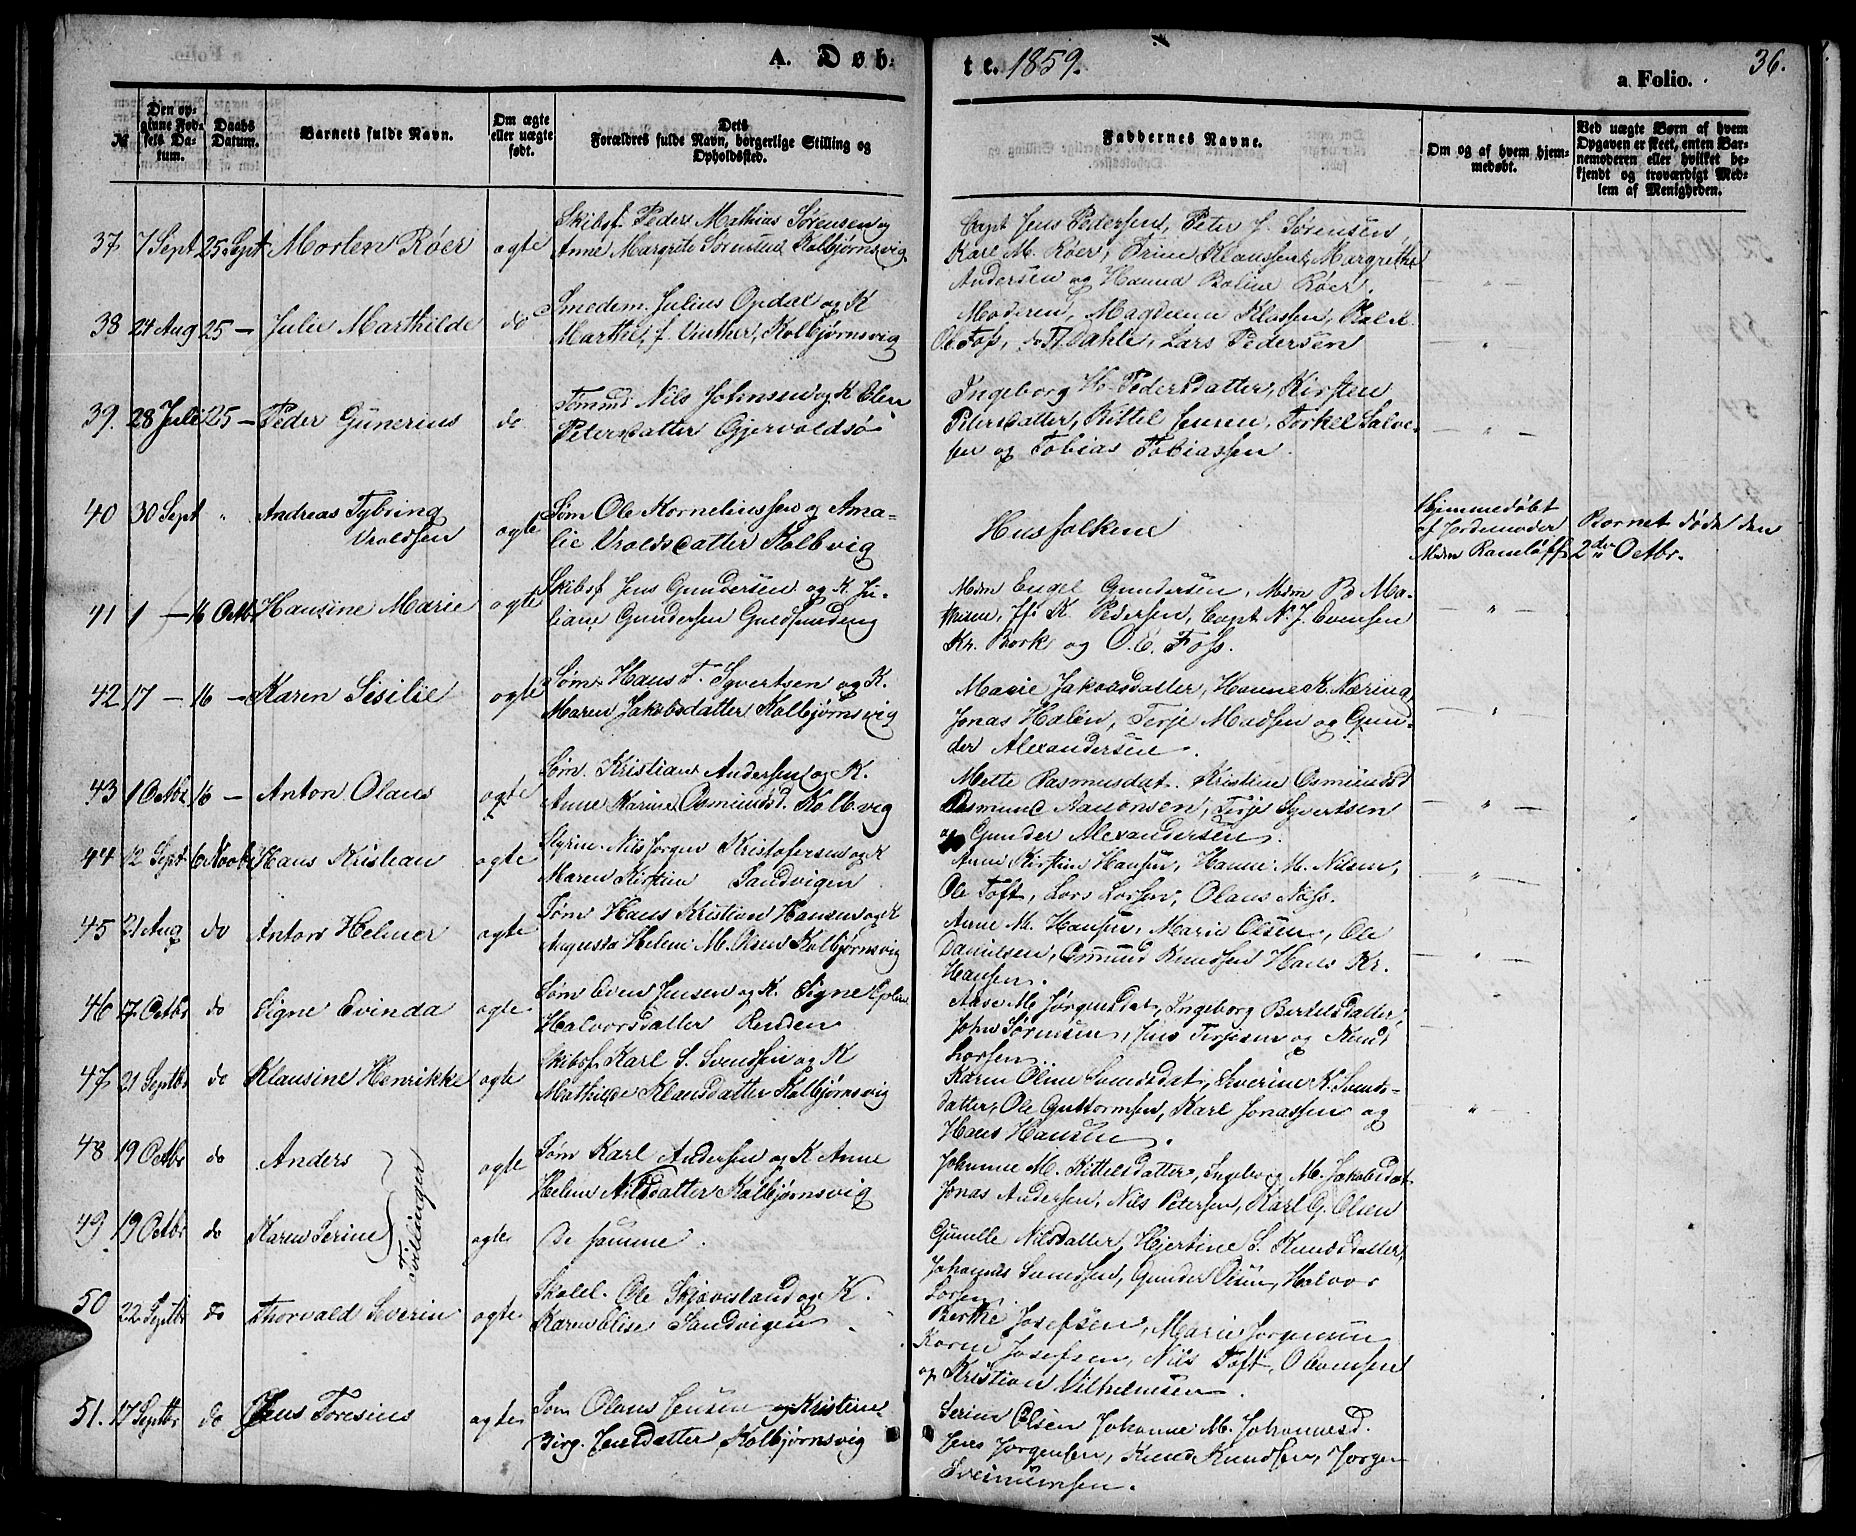 A. Døb- te. 1859. a Folio. 36.
№
Den opgivne Fødsels Datum.
Daabs Datum.
Barnets fulde Navn.
Om ægte eller uægte født.
Dets Forældres fulde Navn, borgerlige Stilling og Opholdssted.
Faddernes Navne.
Om og af hvem hjemmedøbt.
Ved uægte Børn af hvem Opgaven er skeet, enten Barnemoderen eller hvilket bekjendt og troværdigt Medlem af Menigheden.
37 7 Sept 25 Sept Morten Röer ægte
Skibsf Peder Mathias Sørensen og
Anne Margrete Sørensen Kolbjørnsvig
Capt Jens Pedersen, Peter J. Sørensen,
Karl M. Röer, Trine Klaussen, Margrethe
Andersen og Hanna Boline Röer.
38 24 Aug 25 — Julie Marthilde do
Smedem. Julius Opdal og K
Marthe, f. Vinther, Kolbjørnsvig
Moderen, Magdena Klassen,
Ol. Foss, Dahle, Lars Pedersen
39. 28 Juli 25 — Peder Gunerius do
Tømmd Nils Johnsen og K Olene
Petersdatter Gjervoldsø
Ingeborg Pedersdatter, Kirsten
Petersdatter, Kittel Jensen, Torkel Salve-
sen og Tobias Tobiassen.
40 30 Sept " Andreas Tybring
Vroldsen ægte
Søm Ole Korneliussen og Ama-
lie Vroldsdatter Kolbvig
Husfolkene
Hjemmedøbt
af Jordemoder
Mdm Ramløff
Barnet døde den
2den Octbr.
41 1 — 16 Octb Hansine Marie ægte
Skibsf Jens Gundersen og K. Ju-
liane Gundersen Guldsmedeng
Mdm Engel Gundersen, Mdm B Ma-
thisen, Jfr K. Pedersen, Capt N. J. Evensen
Kr. Bork og O. E. Foss.
42 17 — 16 — Karen Sisilie ægte
Søm Hans T. Syvertsen og K.
Maren Jakobsdatter Kolbjørnsvig
Marie Jakobsdatter, Hanne K. Næring
Jonas Halen, Terje Madsen og Gun-
der Alexandersen.
43 1 Octbr 16 — Anton Olaus ægte
Søm. Kristian Andersen og K.
Anne Karine Osmundsd. Kolbvig
Mette Rasmusdat. Kristine Osmundsd
Osmund Aanonsen, Terje Syvertsen
og Gunder Alexandersen.
44 12 Sept 6 Novbr Hans Kristian ægte
Styrm Nils Jørgen Kristofersen og K
Maren Kirstine Sandvigen
Anne Kirstine Hansen, Hanne M. Nilsen,
Ole Toft, Lars Larsen, Olaus Næss.
45 21 Aug do Anton Helmer ægte
Tøm Hans Kristian Hansen og K
Augusta Helene M. Olsen Kolbjørnsvig
Anne M. Hansen, Marie Olsen, Ole
Danielsen, Osmund Knudsen Hans Kr.
Hansen.
46 17 Octbr do Signe Evinda ægte
Søm Even Jensen og K. Signe
Halvorsdatter Renden
Aase M. Jørgensdat, Ingeborg Bertelsdatter,
John Sørensen, Jens Terjesen og Knud
Larsen.
47 21 Septbr do Klausine Henrikke ægte
Skibsf Karl S. Svendsen og K
Mathilde Klausdatter Kolbjørnsvig
Karen Oline Svendsdat, Severine K. Svends-
datter, Ole Guttormsen, Karl Jonassen og
Hans Hansen.
48 19 Octbr do Anders ægte
Tvillinger
Søm Karl Andersen og K Anne
Helene Nilsdatter Kolbjørnsvig
Johanne M. Kittelsdatter, Ingeborg M. Jakobsdat
Jonas Andersen, Nils Petersen, Karl G. Olsen
49 19 Octbr do Karen Serine ægte
De samme.
Gunille Nilsdatter, Hjertine S. Knudsdatter,
Johannes Svendsen, Gunder Olsen, Halvor
Larsen.
50 22 Septbr do Thorvald Severin ægte
Skolel. Ole Skjævesland og K.
Karen Elise Sandvigen
Berthe Josefsen, Marie Jørgensen
Karen Josefsen, Nils Toft, O Evensen
og Kristian Vilhelmsen.
51. 17 Septbr do Jens Toresius ægte
Søm Olaus Jensen og Kristine
Birg. Jensdatter, Kolbjørnsvig
Serine Olsen Johanne M. Johannesd.
Jens Jørgensen, Knud Knudsen, Jørgen
Sveinumsen.